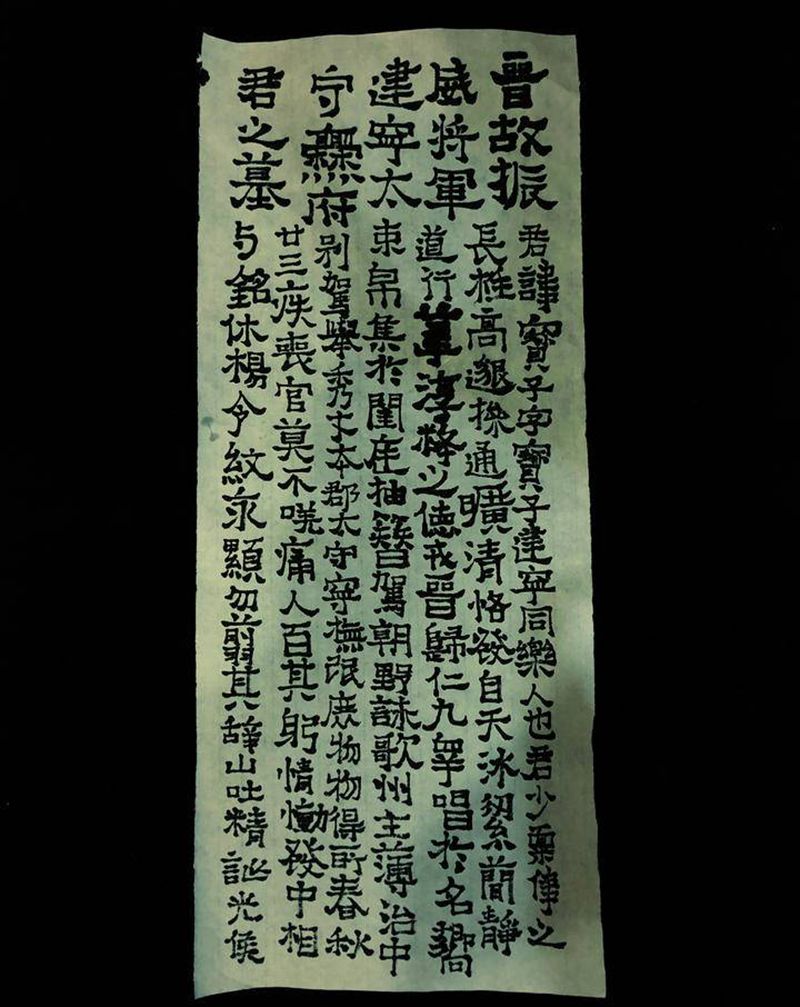 晉故振
威將軍
建寧太
守爨府
君之墓
君諱寶子字寶子建寧同樂人也君少稟偉之
長雄高邈操通曠清恪發自天氷絜簡靜
道行葦淳粹之德戎晉歸仁九皐唱於名嚮
束帛集於閨庭抽簪駕朝野詠歌州主薄治中
別駕舉秀才本郡太守寧撫氓庶物物得所春秋
廿三疾喪官莫不嗟痛人百其躬情慟發中相
与銘休楊令紋永顯勿翦其辭山吐精誕光俟